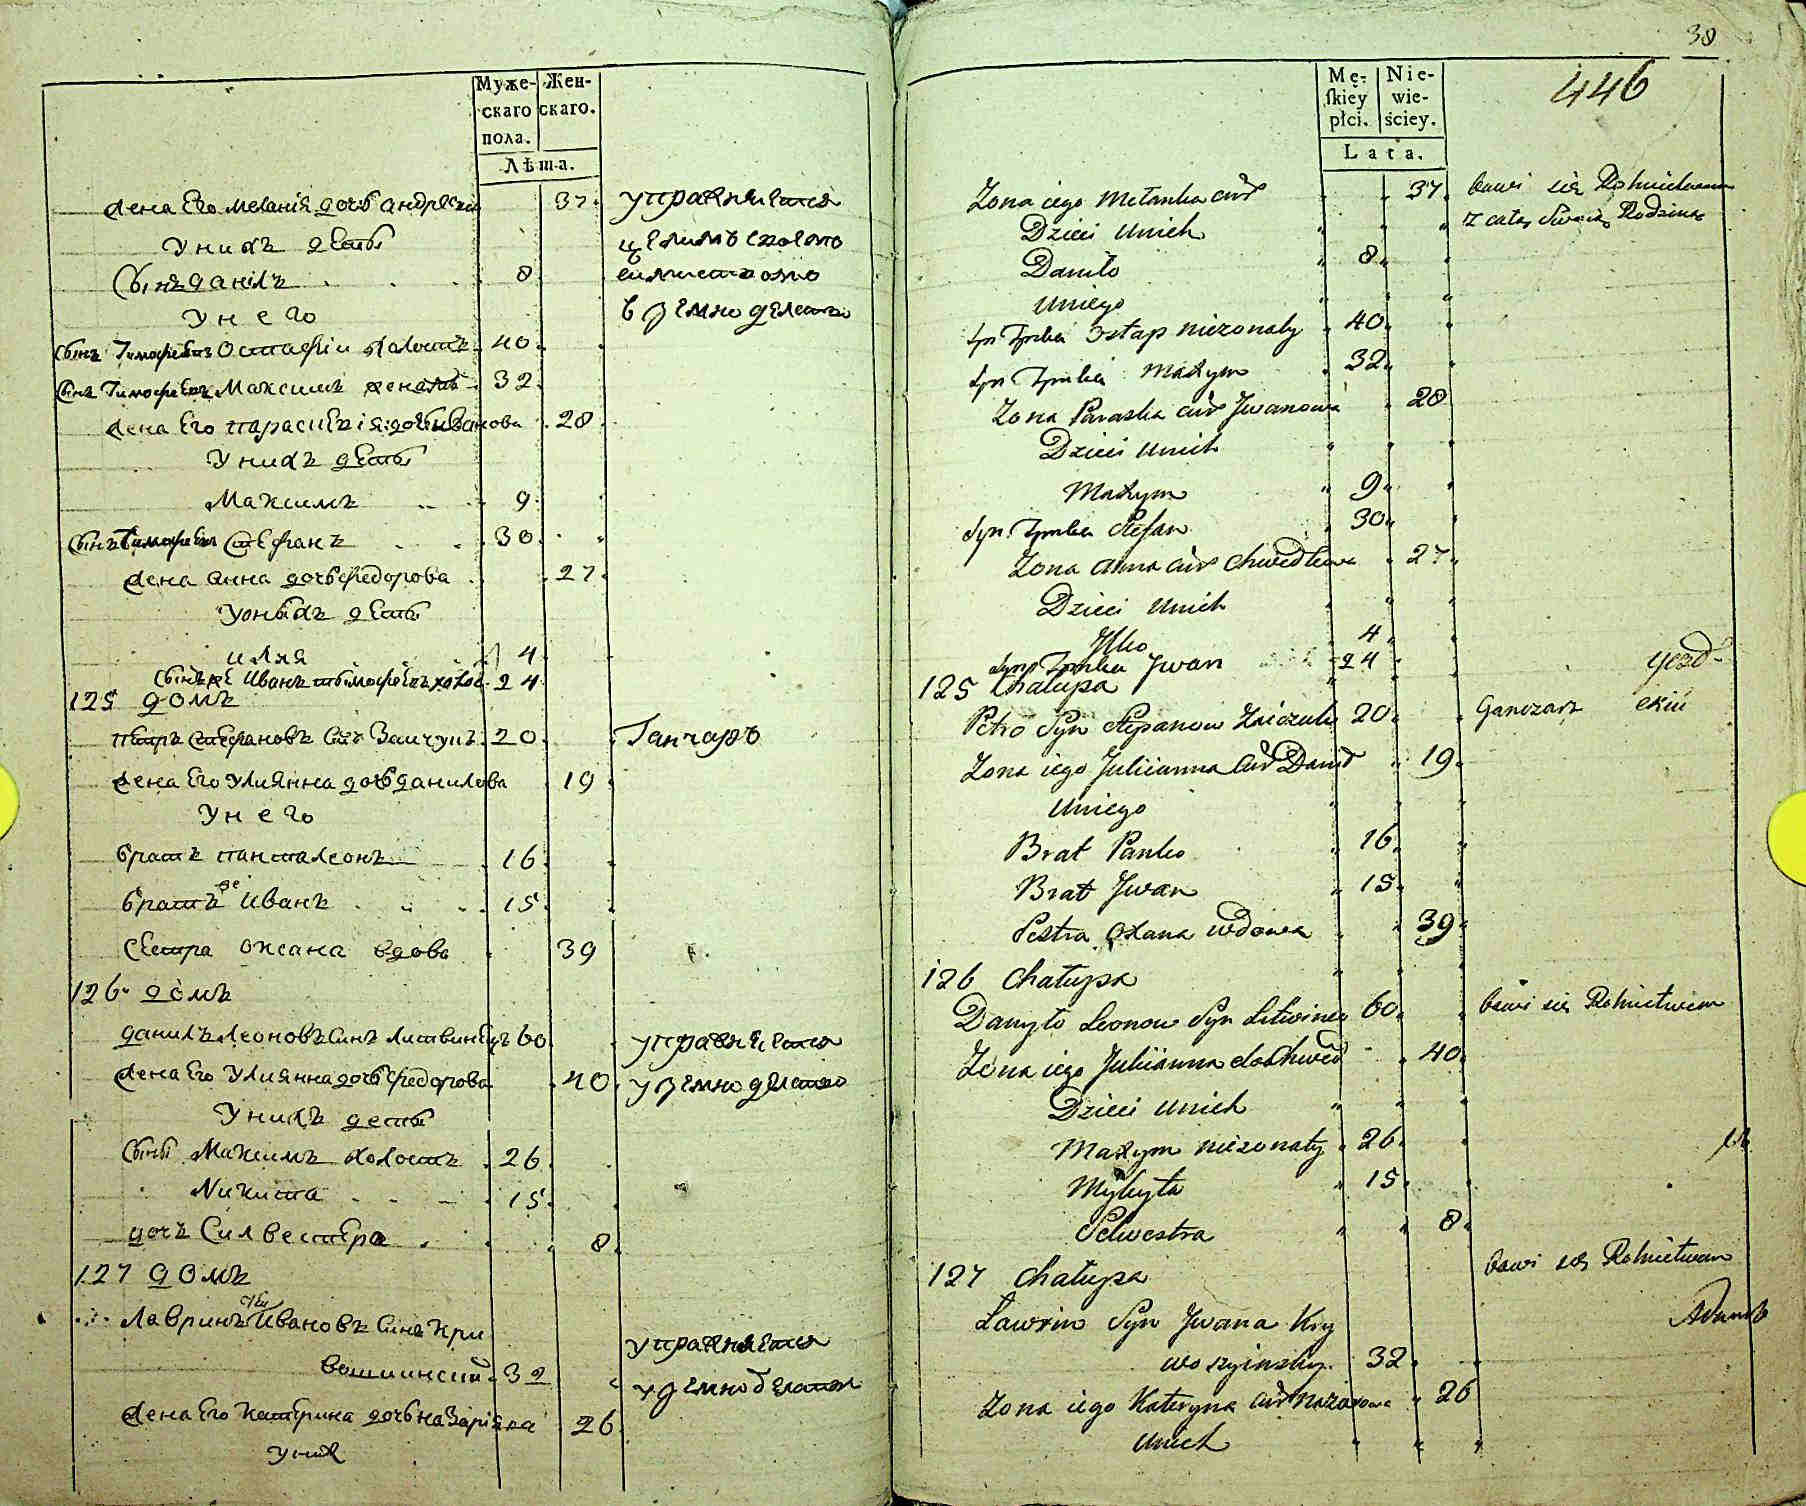 Муже-
скаго
пола.
Жен-
скаго.
Лѣта.
жена Его Меланія дочь андрѣева 37 управляется
У нихъ дѣти цѣлимъ своимъ
Сынъ данилъ 8 симействомъ
У него в земледелствѣ
Сынъ Тимофѣевъ Остафіи холостъ 40
Сынъ Тимофѣевъ Максимъ женатъ 32
жена Его параскевія дочь иванова 28
У нихъ дѣти
Максимъ 9
Сынъ Тимофѣевъ Стефанъ 30
жена анна дочь федорова 27
У оныхъ дѣти
илия 4
Сынъ же Иванъ тимофѣевъ холос 24
125 домъ
петръ стефановъ Синъ Заичукъ 20 Ганчаръ
жена Его Улиянна дочь данилова 19
У него
братъ панталеонъ 16
братъ же Иванъ 15
Сестра оксана вдова 39
126 домъ
данилъ Леоновъ Синъ Литвинецъ 60 управляется
жена Его Улиянна дочь федорова 40 у земледелствѣ
У нихъ дети
Сыни Максимъ холостъ 26
Никита 15
дочъ Силвестра 8
127 домъ
Лавринъ Ивановъ Синъ Кри
вошинский 32 управляется
у земледелствѣ
жена Его Катерина дочь назарiва 26
У них
38
446
Mę-
skiey
płci.
Nie-
wie-
ściey.
Lata.
Zona iego Melanka cur 37 bawi się Rolnictwem
Dzieci Unich z całą Swoią Rodziną
Daniło 8
Uniego
Syn Tymka Ostap niezonaty 40
Syn Tymka Maxym 32
Zona Paraska cur Jwanowa 28
Dzieci Unich
Maxym 9
Syn Tymka Stefan 30
Zona Anna cur Chwedkowa 27
Dzieci Unich
Jlko 4
Syn Tymka Jwan 24
125 Chałupa
Petro Syn Stepanow Zaiczuk 20 Ganczarz
Zona iego Juliianna Cur Danił 19
Uniego
Brat Panko 16
Brat Jwan 15
Sestra Oxana wdowa 39
126 Chałupa
Danyło Leonow Syn Litwinec 60 bawi się Rolnictwem
Zona iego Juliianna do Chwed 40
Dzieci Unich
Maxym niezonaty 26
Mykyta 15
Selwestra 8
127 Chałupa bawi się Rolnictwem
Lawrin Syn Jwana Kry
woszyinsky 32
Zona iego Kateryna cur Nazarowa 26
Unich